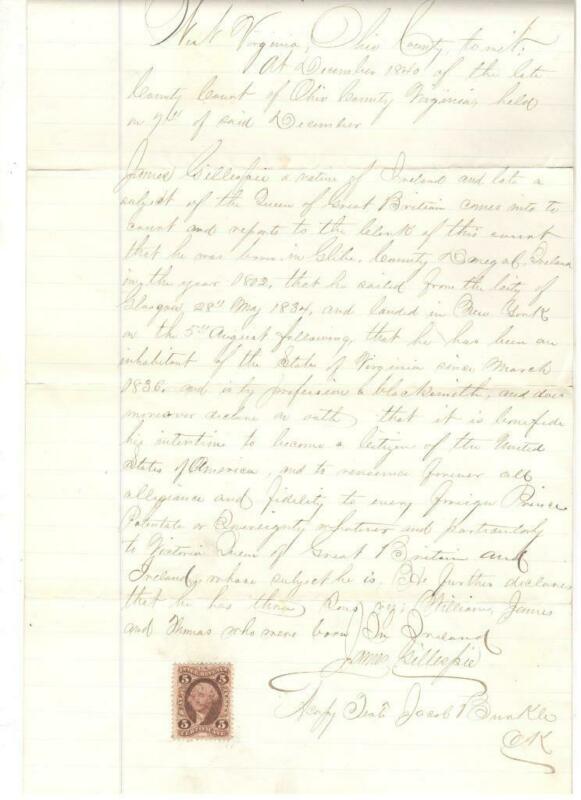 West Virginia, Ohio County, to wit:
At December 1840 of the late
County Court of Ohio County Virginia, held
on 7th of said December
James Gillespie a native of Ireland and late a
subject of the Queen of Great Britian comes into to
court and reports to the Clerk of this court
that he was born in Glibe, County Donegal, Ireland
in the year 1802, that he sailed from the City of
Glasgow 28th May 1834, and landed in New York
on the 5th August following, that he has been an
inhabitant of the State of Virginia since March
1836. and is by profession a blacksmith, and does
moreover declare on oath, that it is bonefide
his intention to become a Citizen of the United
States of America, and to renounce forever all
allegiance and fidelity to every foreign Prince
Potentate or Sovereignty whatever and particularly
to Victoria Queen of Great Britain and
Ireland, whose subject he is. He further declares
that he has three Sons viz: William, James
and Thomas who were born In Ireland
James Gillespie
A copy Teste Jacob Bunkle
CK
5 5
5 5
CERTIFICATE